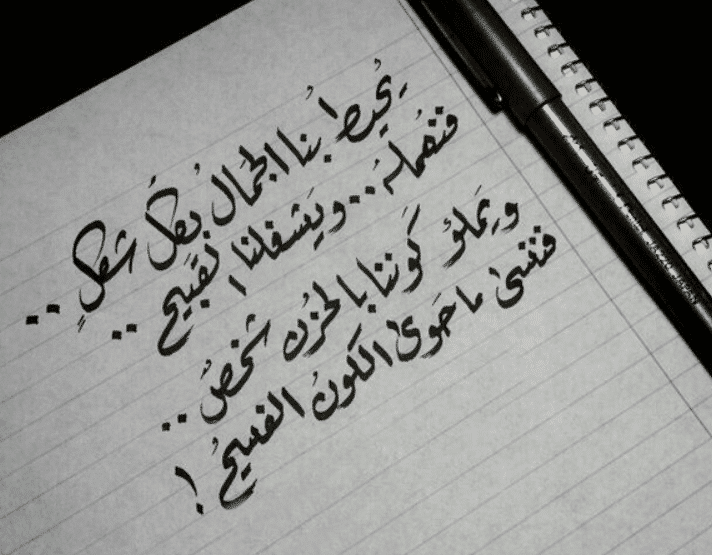 يُحيط بُنا الجَمالُ بُكل شكلٍ ..
فنُهملهُ .. ويَشغلنا القبيح ..
ويَملؤ كَوننا بالحُزن شخصٌ ..
فننسىٰ ما حَوىٰ الكونُ الفسيحُ !